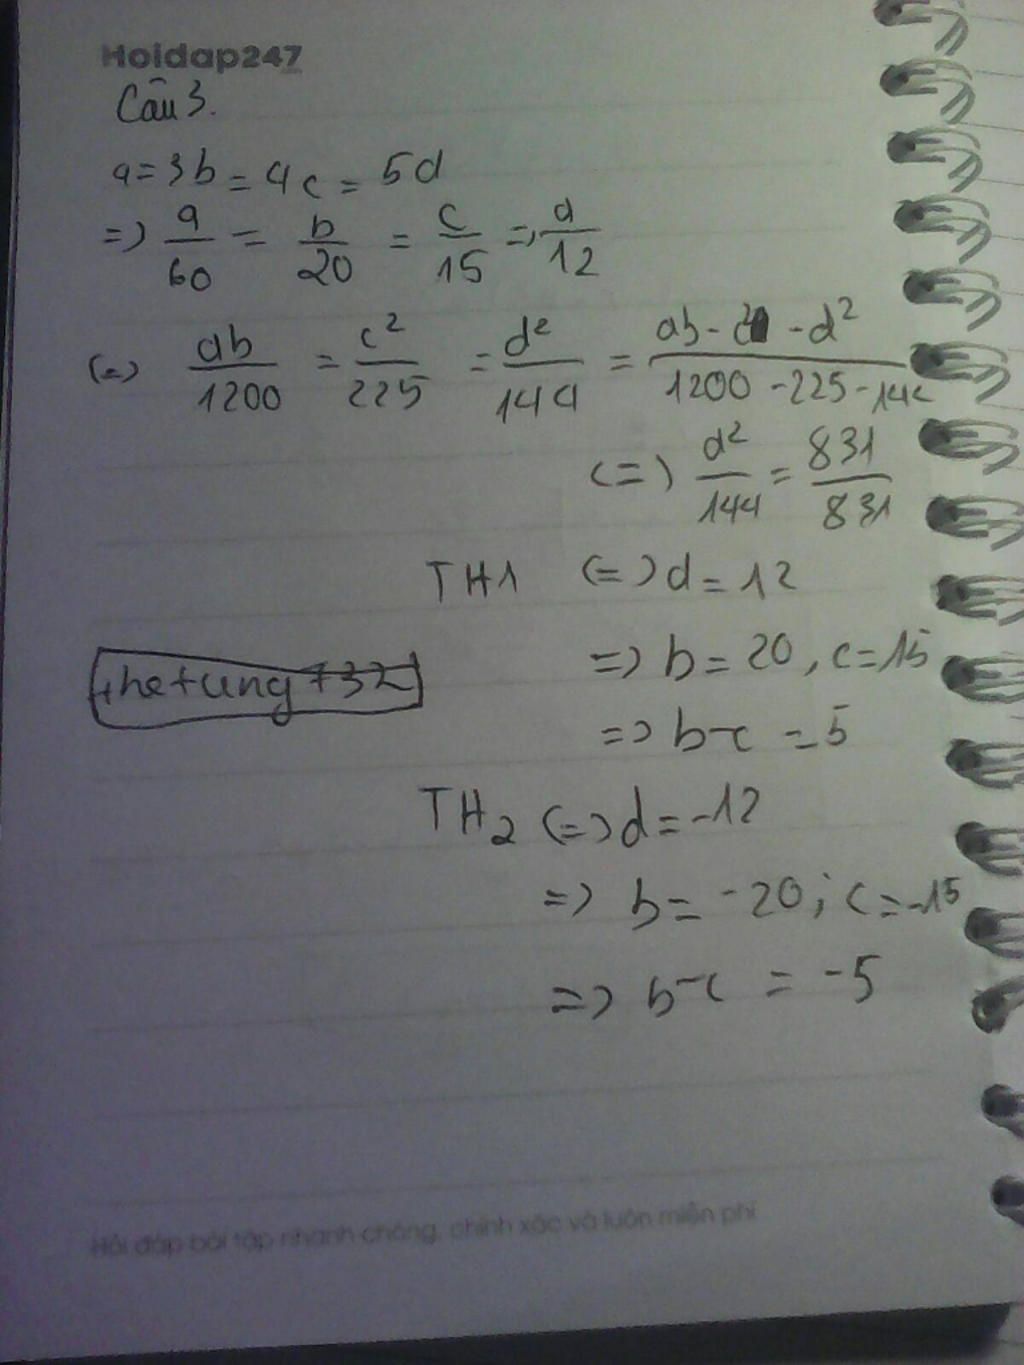 Hoidap247
Câu 3.
a = 3b = 4c = 5d
=) a/60 = b/20 = c/15 =) d/12
(=) ab/1200 = c²/225 = d²/144 = ab - c² - d²/1200 - 225 - 144
(=) d²/144 = 831/831
TH1 (=) d = 12
=) b = 20, c = 15
thetung732
=) b-c = 5
TH2 (=) d = -12
=) b = -20; c = -15
=) b-c = -5
Hỏi đáp bài tập nhanh chóng, chính xác và luôn miễn phí